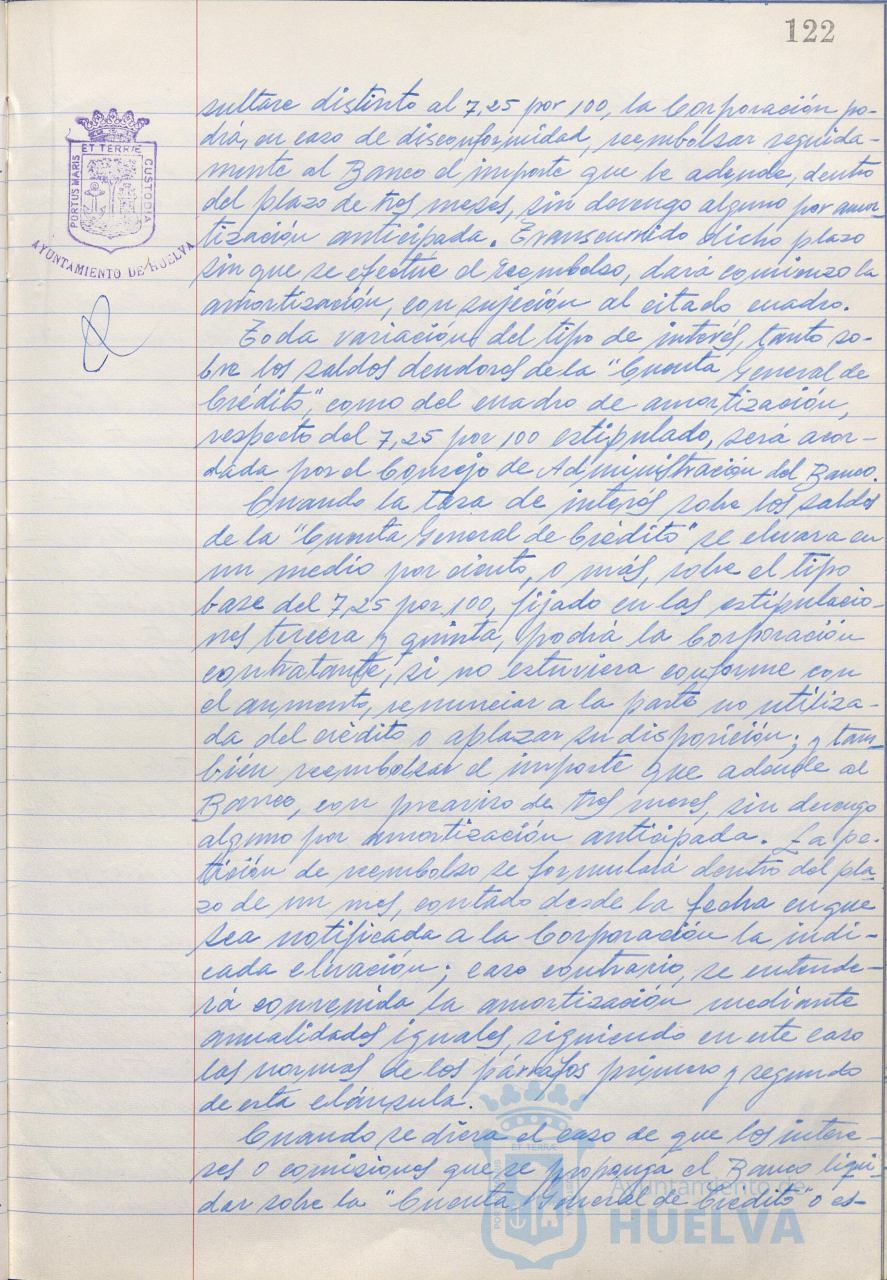 122
PORTUS MARIS ET TERRÆ CUSTODIA
AYUNTAMIENTO DE HUELVA
sultare distinto al 7,25 por 100, la Corporación po-
drá, en caso de disconformidad, reembolsar seguida-
mente al Banco el importe que le adeude, dentro
del plazo de tres meses, sin devengo alguno por amor-
tización anticipada. Transcurrido dicho plazo
sin que se efectue el reembolso, dará comienzo la
amortización, con sujeción al citado cuadro.
Toda variación del tipo de interés, tanto so-
bre los saldos deudores de la "Cuenta General de
Crédito", como del cuadro de amortización,
respecto del 7,25 por 100 estipulado, será acor-
dada por el Consejo de Administración del Banco.
Cuando la tasa de interés sobre los saldos
de la "Cuenta General de Crédito" se elevara en
un medio por ciento, o más, sobre el tipo
base del 7,25 por 100, fijado en las estipulacio-
nes tercera y quinta, podrá la Corporación
contratante, si no estuviera conforme con
el aumento, renunciar a la parte no utiliza-
da del crédito o aplazar su disposición; y tam-
bién reembolsar el importe que adeude al
Banco, con preaviso de tres meses, sin devengo
alguno por amortización anticipada. La pe-
tición de reembolso se formulará dentro del pla-
zo de un mes, contado desde la fecha en que
sea notificada a la Corporación la indi-
cada elevación; caso contrario, se entende-
rá convenida la amortización mediante
anualidades iguales, siguiendo en este caso
las normas de los párrafos primero y segundo
de esta cláusula.
Cuando se diera el caso de que los intere-
ses o comisiones que se proponga el Banco liqui-
dar sobre la "Cuenta General de Crédito" o es-
Ayuntamiento de
HUELVA